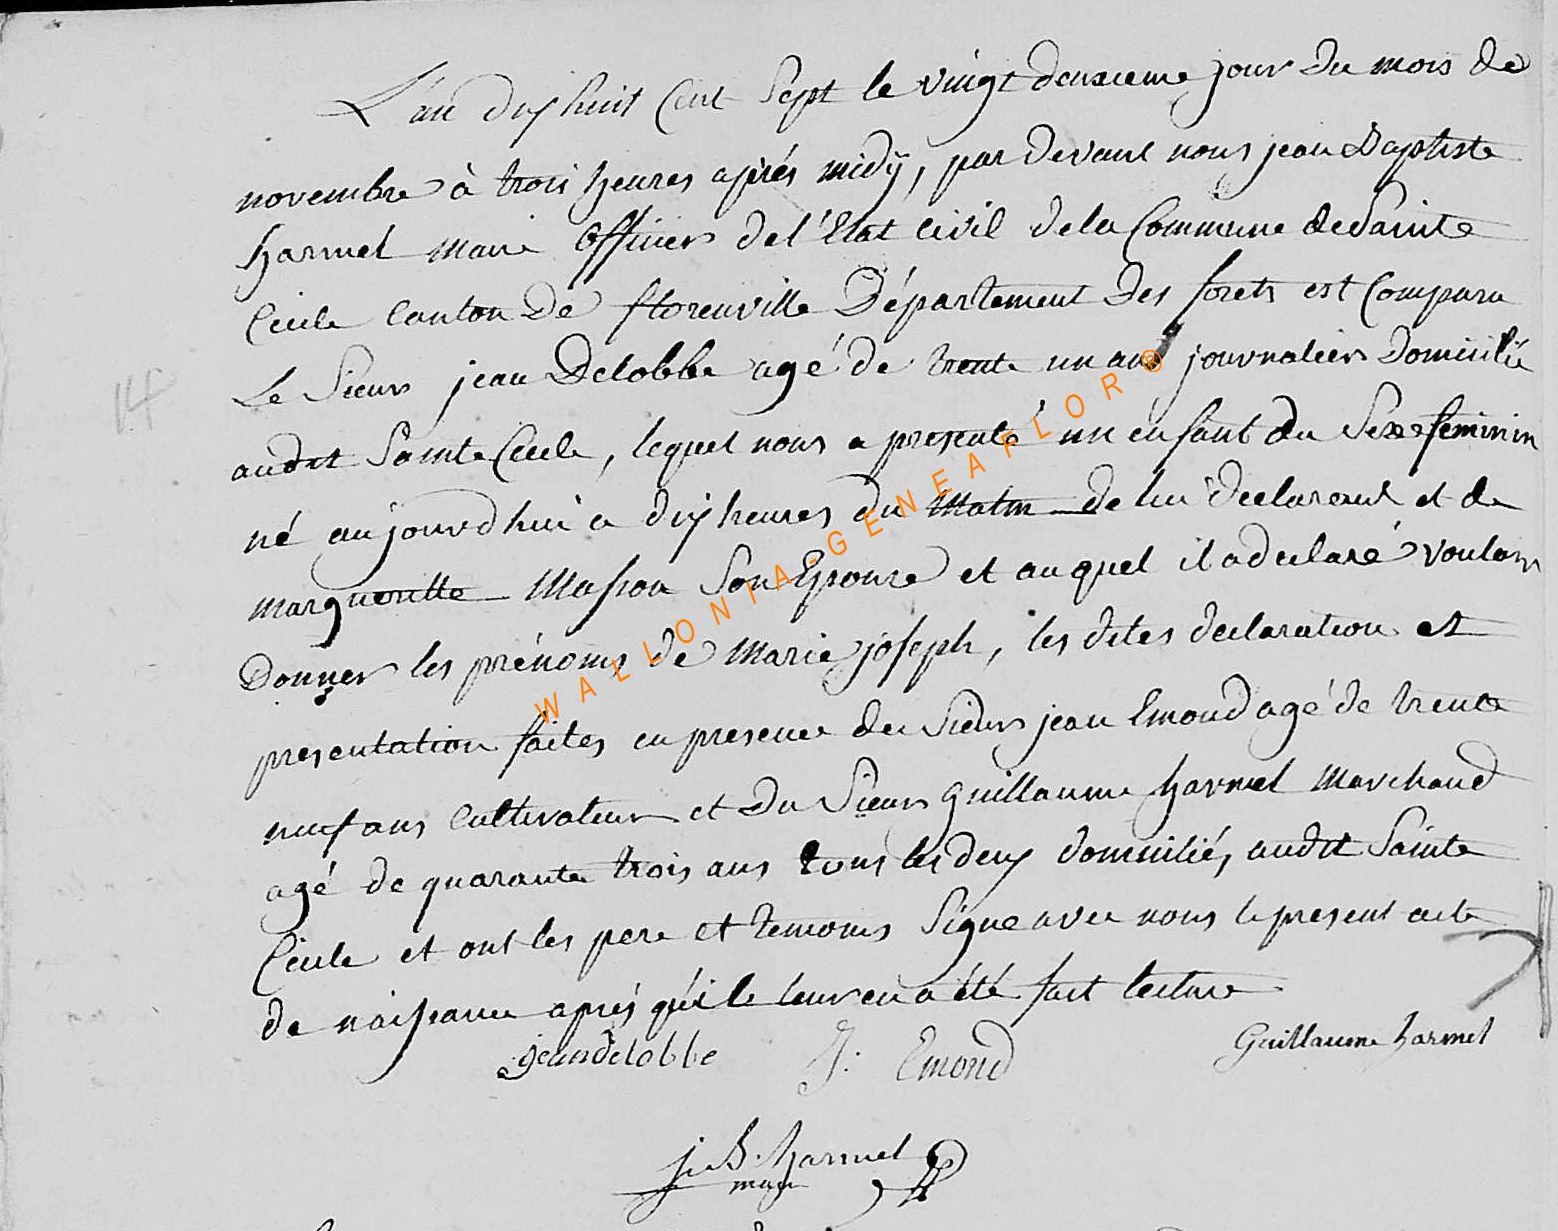 L'an dix huit Cent Sept le vingt deuxieme jour du mois de
novembre à trois heures après midÿ, par devant nous jean Baptiste
harmel maire officier de l'Etat Civil de la Commune de Sainte
Cecile Canton de florenville Département des forets est Comparu
Le Sieur jean Delobbe agé de trente un ans journalier Domicilié
audit Sainte Cecile, lequel nous a presenté un enfant du Sexe feminin
né aujourdhui a dix heures du Matin de lui declarant et de
margueritte Masson Son Epouse et auquel il a declaré vouloir
Donner les prénoms de Marie joseph, les dites declaration et
presentation faites en presence du Sieur jean Emond agé de trente
neuf ans Cultivateur et du Sieur guillaume harmel Marchand
agé de quarante trois ans tous les deux domiciliés audit Sainte
Cecile et ont les pere et temoins Signé avec nous le present acte
de naissance après qu'il leur en a été fait lecture
jean delobbe J. Emond Guillaume harmel
j. B. harmel
maire
14
WALLONIA-GENEAFLOR®